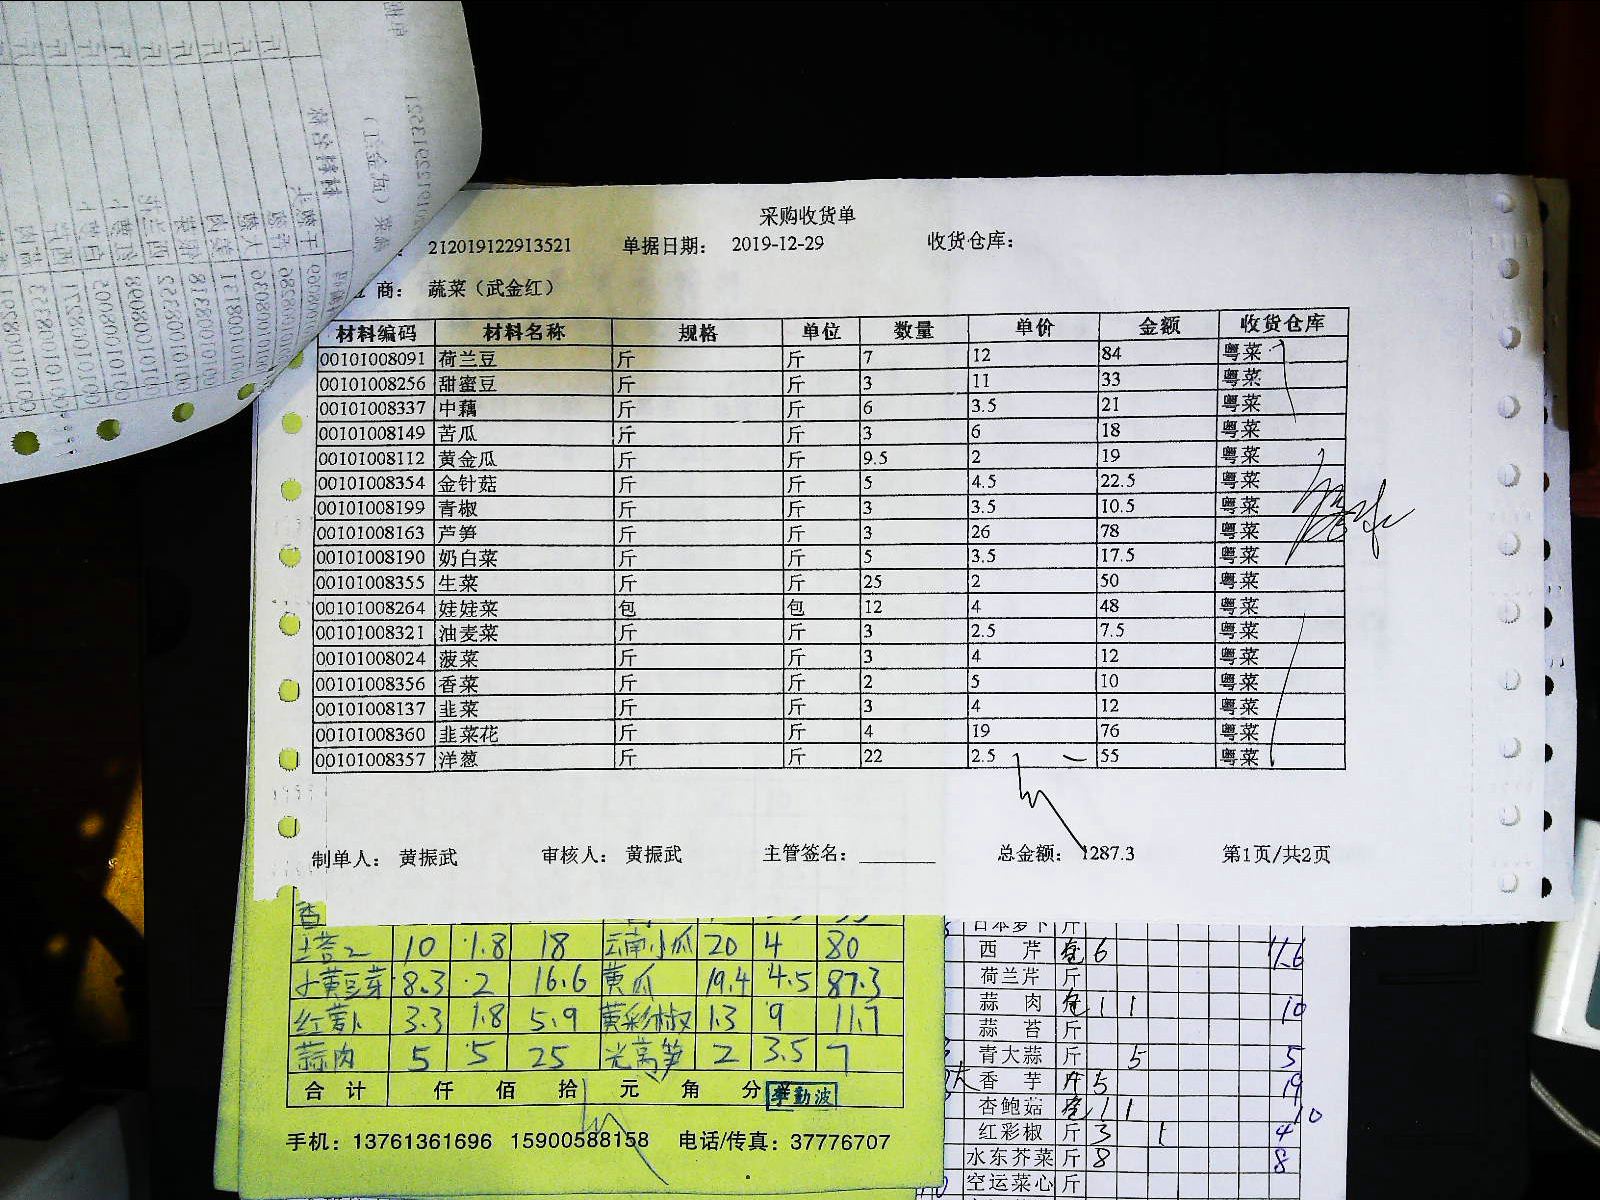 采购收货单
212019122913521 单据日期： 2019-12-29 收货仓库：
商： 蔬菜（武金红）
材料编码 材料名称 规格 单位 数量 单价 金额 收货仓库
00101008091 荷兰豆 斤 斤 7 12 84 粤菜
00101008256 甜蜜豆 斤 斤 3 11 33 粤菜
00101008337 中藕 斤 斤 6 3.5 21 粤菜
00101008149 苦瓜 斤 斤 3 6 18 粤菜
00101008112 黄金瓜 斤 斤 9.5 2 19 粤菜
00101008354 金针菇 斤 斤 5 4.5 22.5 粤菜
00101008199 青椒 斤 斤 3 3.5 10.5 粤菜
00101008163 芦笋 斤 斤 3 26 78 粤菜
00101008190 奶白菜 斤 斤 5 3.5 17.5 粤菜
00101008355 生菜 斤 斤 25 2 50 粤菜
00101008264 娃娃菜 包 包 12 4 48 粤菜
00101008321 油麦菜 斤 斤 3 2.5 7.5 粤菜
00101008024 菠菜 斤 斤 3 4 12 粤菜
00101008356 香菜 斤 斤 2 5 10 粤菜
00101008137 韭菜 斤 斤 3 4 12 粤菜
00101008360 韭菜花 斤 斤 4 19 76 粤菜
00101008357 洋葱 斤 斤 22 2.5 55 粤菜
制单人： 黄振武 审核人： 黄振武 主管签名： 总金额： 1287.3 第1页/共2页
10 1.8 18 云南小瓜 20 4 80
小黄豆芽 8.3 2 16.6 黄瓜 19.4 4.5 87.3
红萝卜 3.3 1.8 5.9 黄彩椒 1.3 9 11.7
蒜肉 5 5 25 光莴笋 2 3.5 7
合计 仟 佰 拾 元 角 分
手机：13761361696 15900588158 电话/传真：37776707
日本萝卜 斤
西芹 6
荷兰芹 斤
蒜肉 1 1 10
蒜苔 斤
青大蒜 斤 5 5
香芋 斤 5 19
杏鲍菇 1 1 10
红彩椒 斤 3 1 4
水东芥菜 斤 8 8
空运菜心 斤